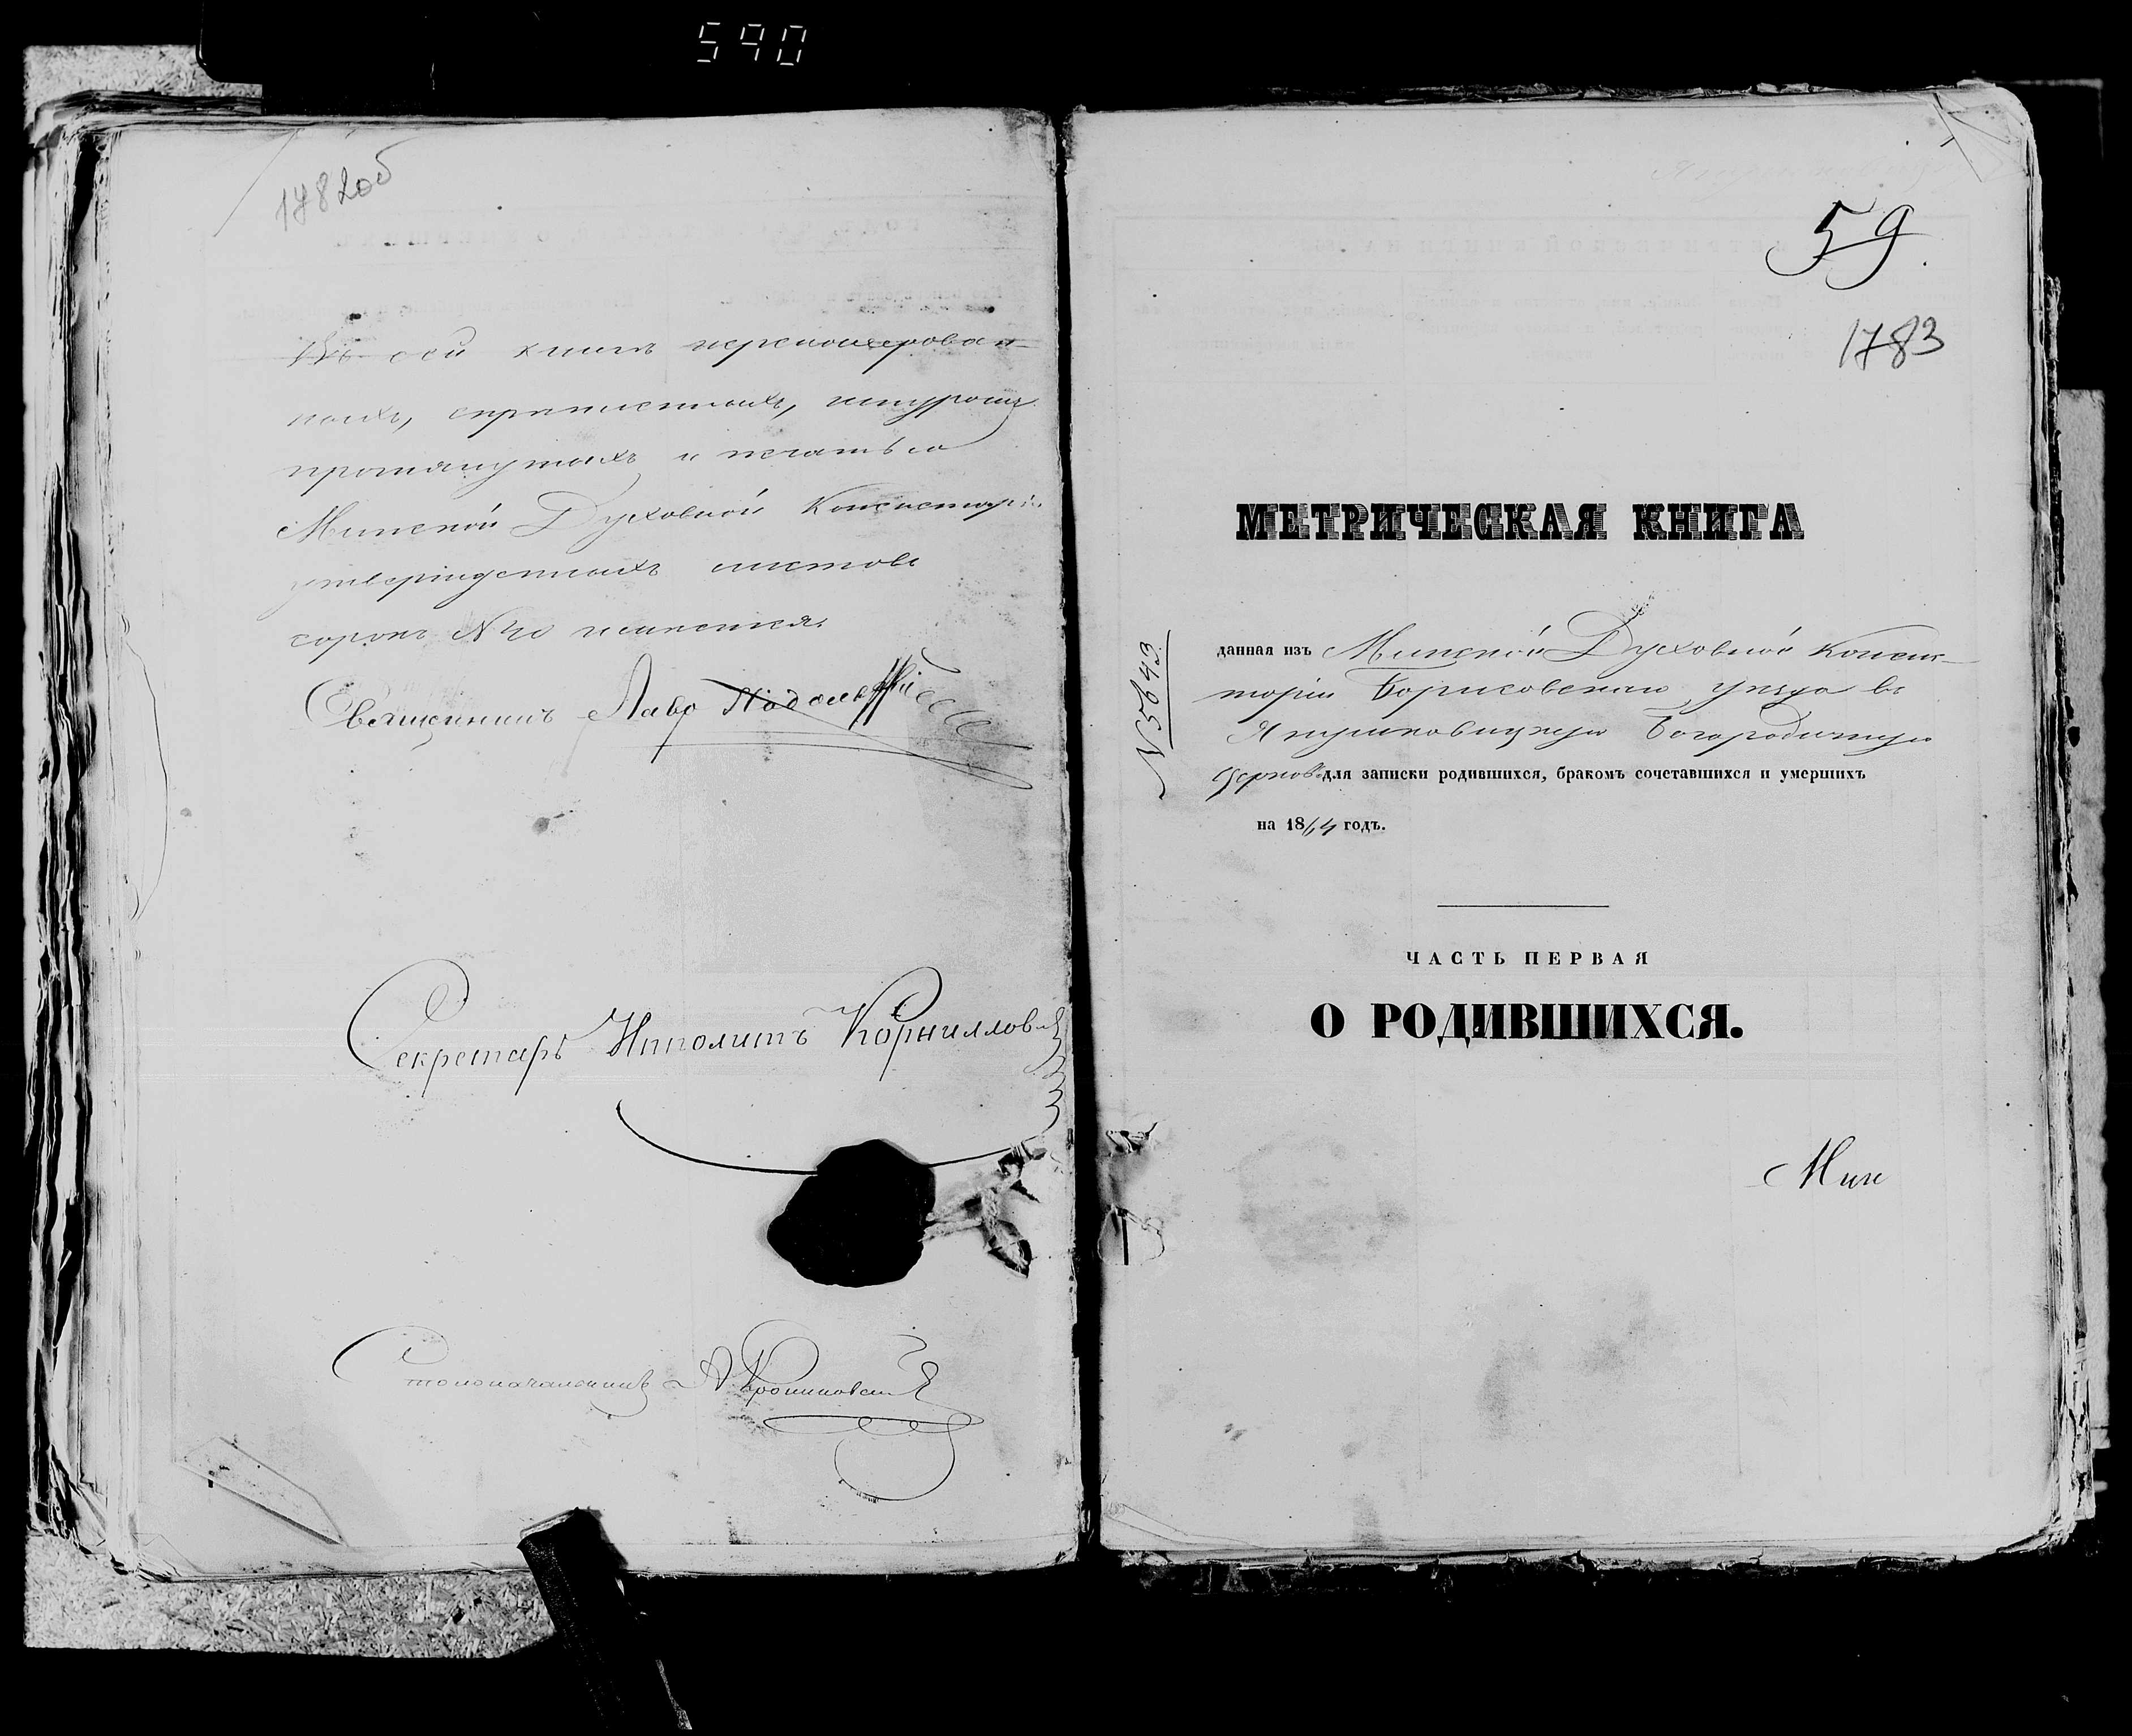 590
1782об
Въ сей книгѣ перенумерован-
ныхъ, скрѣпленныхъ, шнуромъ
протянутыхъ и печатью
Минской Духовной Консисторіи
утвержденныхъ листовъ
сорокъ N 40 имѣется.
Священникъ
Секретарь Ипполитъ Корниллов
Столоначальникъ А
59
1783
МЕТРИЧЕСКАЯ КНИГА
N 5643
данная изъ Минской Духовной Консис-
торіи Борисовскаго уѣзда въ
Богородичную
Церковь для записки родившихся, бракомъ сочетавшихся и умершихъ
на 1864 годъ.
ЧАСТЬ ПЕРВАЯ
О РОДИВШИХСЯ.
Мин